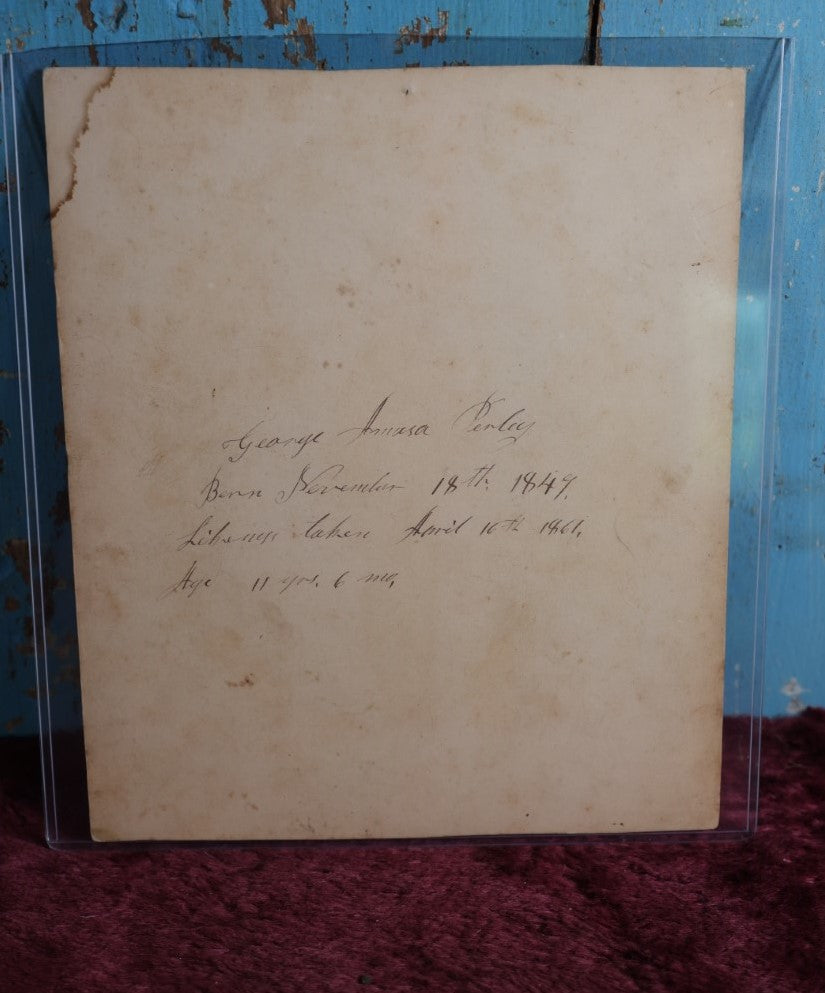 George Amasa Perley
Born November 18th 1849.
Likeness taken April 10th 1861.
Age 11 yrs. 6 mo.